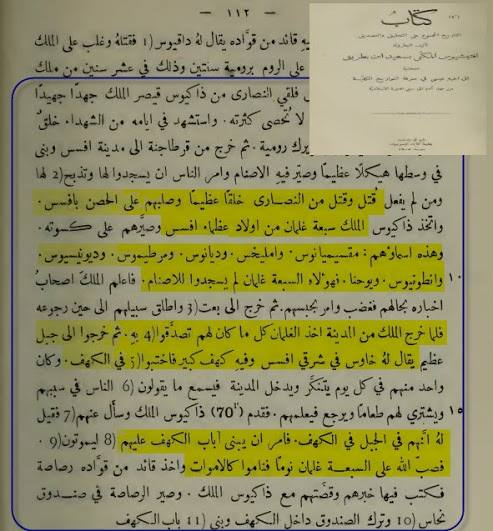 — ١١٢ —
فيه قائد من قوَّاده يقال لهُ داقيوس (1 فقتلهُ وغلب على الملك
على الروم برومية سنتين وذلك في عشر سنين من ملك
فلقي النصارى من ذاكيوس قيصر الملك جهدًا جهيدًا
لا تُحْصى كثرته. واستشهد في ايامه من الشهداء خلقٌ
يرك رومية. ثم خرج من قرطاجنة الى مدينة افسس وبنى
في وسطها هيكلًا عظيمًا وصيَّر فيهِ الاصنام وامر الناس ان يسجدوا لها وتذبح (2 لها
ومن لم يفعل قُتل وقتل من النصارى خلقًا عظيمًا وصلبهم على الحصن بافسس.
واتخذ ذاكيوس الملك سبعة غلمان من اولاد عظماء افسس وصيَّرهم على كسوته.
وهذه اسماؤهم: مقسيميانوس. وامليخس. وديانوس. ومرطيموس. وديونيسيوس.
١٠ وانطونيوس. ويوحنا. فهولاء السبعة غلمان لم يسجدوا للاصنام. فاعلم الملكَ اصحابُ
اخباره بحالهم فغضب وامر بحبسهم. ثم خرج الى بعث (3 واطلق سبيلهم الى حين رجوعه
فلما خرج الملك من المدينة اخذ الغلمان كل ما كان لهم تصدَّقوا (4 بهِ. ثم خرجوا الى جبل
عظيم يقال لهُ خاوس في شرقي افسس وفيهِ كهف كبير فاختبوا (5 في الكهف. وكان
واحد منهم في كل يوم يتنكَّر ويدخل المدينة فيسمع ما يقولون (6 الناس في سببهم
١٥ ويشتري لهم طعامًا ويرجع فيعلمهم. فقدم (70) ذاكيوس الملك وسأل عنهم (7 فقيل
لهُ انَّهم في الجبل في الكهف. فامر ان يبنى اباب الكهف عليهم (8 ليموتون (9.
فصب الله على السبعة غلمان نومًا فناموا كالاموات واخذ قائد من قوَّاده رصاصة
فكتب فيها خبرهم وقصَّتهم مع ذاكيوس الملك. وصير الرصاصة في صندوق
نحاس (10 وترك الصندوق داخل الكهف وبنى (11 باب الكهف
كتاب
التاريخ المجموع على التحقيق والتصديق